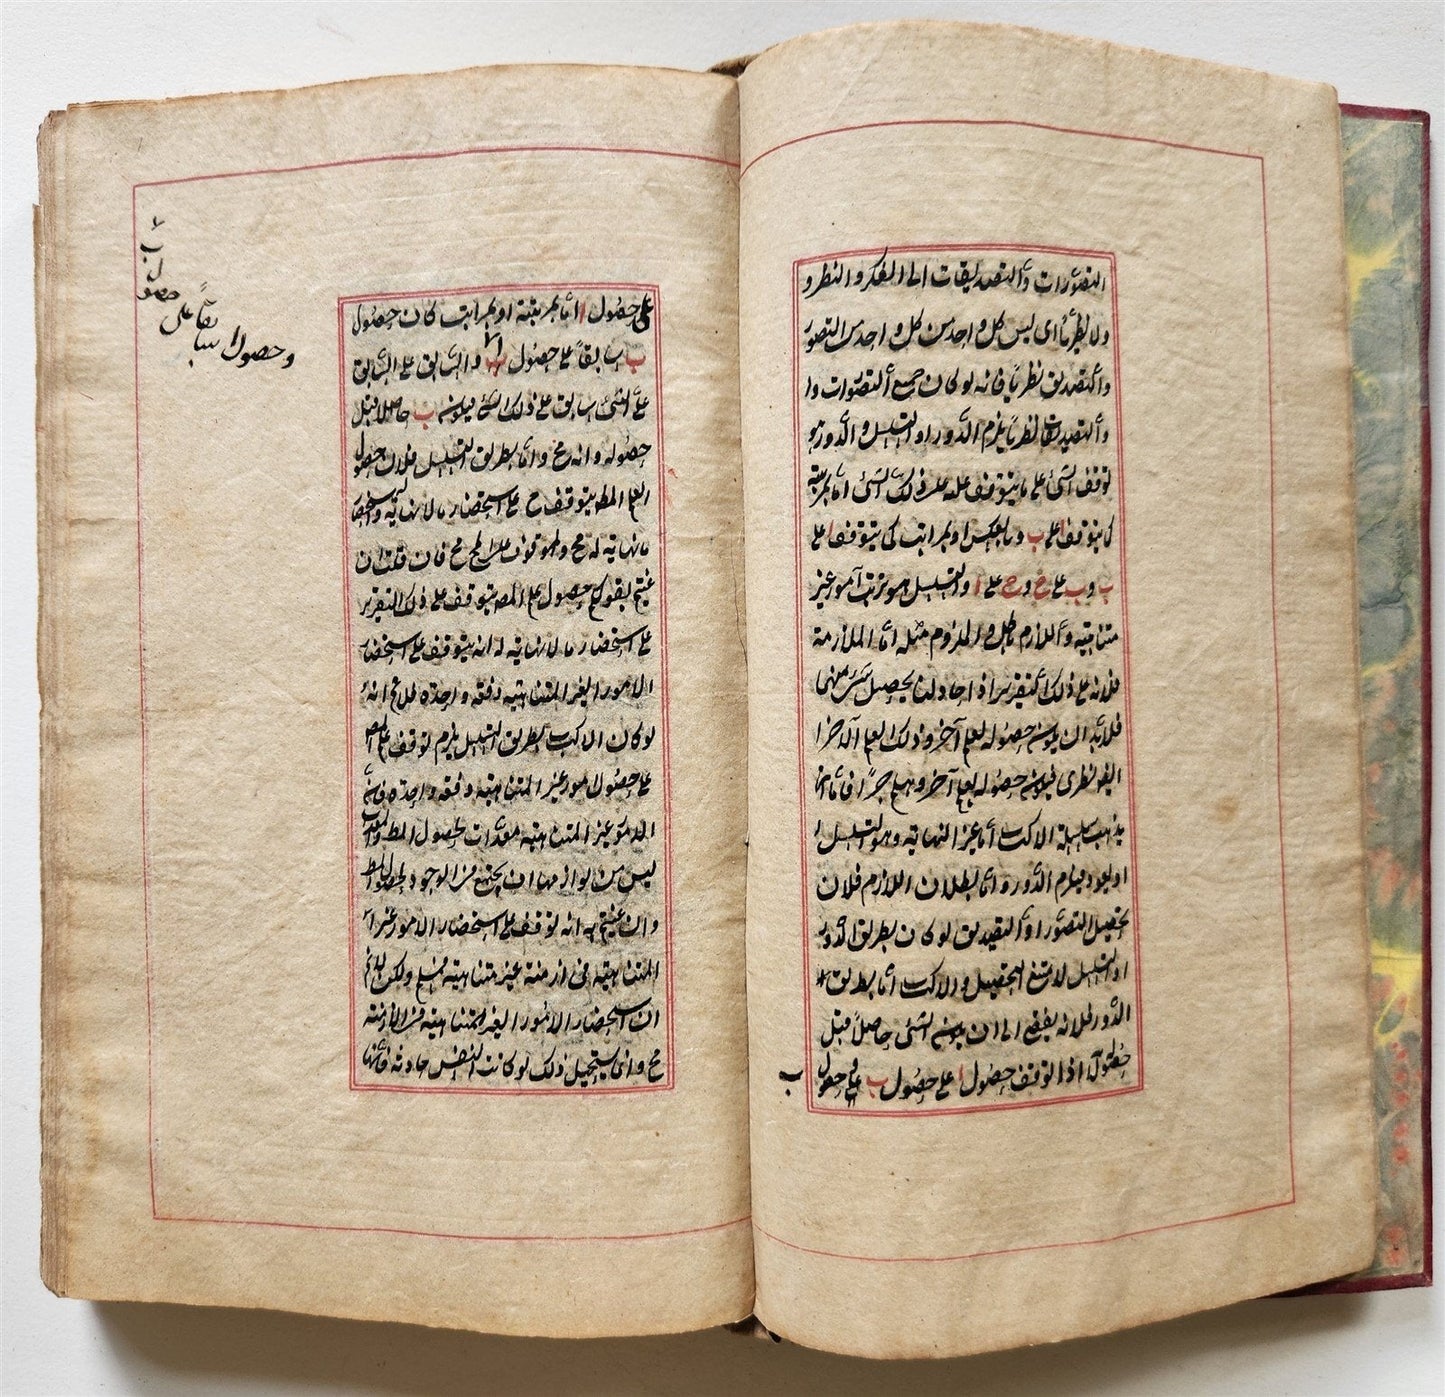 التصورات والتصديقات الى الفكر والنظر و
ولا نظريا اى ليس كل واحد من كل واحد من التصور
والتصديق نظريا فانه لو كان جميع التصورات وا
والتصديقات نظريا يلزم الدور او التسلسل والدور هو
توقف الشئ على ما يتوقف عليه ذلك الشئ اما بمرتبة
كما يتوقف ا على ب وبالعكس او بمراتب كما يتوقف ا على
ب وب على ج وج على ا والتسلسل هو ترتب امور غير
متناهية واللازم باطل والملزوم مثله اما الملازمة
فلانه على ذلك التقدير اذا حاولنا تحصيل شئ منهما
فلا بد ان يكون حصوله بعلم آخر وذلك العلم الآخر ا
ايضا نظرى فيكون حصوله بعلم آخر وهلم جرا فاما ان
يذهب سلسلة الاكتساب الى غير النهاية وهو التسلسل ا
او يعود فيلزم الدور واما بطلان اللازم فلان
تحصيل التصور او التصديق لو كان بطريق الدور
او التسلسل لامتنع التحصيل والاكتساب اما بطريق
الدور فلانه يفضى الى ان يكون الشئ حاصلا قبل
حصوله اذا توقف حصول ا على حصول ب و حصول
ب
على حصول ا اما بمرتبة او بمراتب كان حصول
ب سابقا على حصول ا والسابق على السابق
على الشئ سابق على ذلك الشئ فيكون ب حاصلا قبل
حصوله وانه مح واما بطريق التسلسل فلان حصول
العلم المط يتوقف ح على استحضار ما لا نهاية له واستحضار
ما لا نهاية له مح والموقوف على المح مح فان قلت ان
عنيتم بقولكم حصول علم المط يتوقف على ذلك التقدير
على استحضار ما لا نهاية له انه يتوقف على استحضار
الامور الغير المتناهية دفعة واحدة فلا نم انه
لو كان الاكتساب بطريق التسلسل يلزم توقف علم المط
على حصول امور غير المتناهية دفعة واحدة فان
الامور غير المتناهية معدات لحصول المط والمعدات
ليس من لوازمها ان يجتمع فى الوجود لحصول المط
وان عنيتم به انه توقف على استحضار الامور غير
المتناهية فى ازمنة غير متناهية فمسلم ولكن لا نم
ان استحضار الامور الغير المتناهية فى الازمنة
مح وانما يستحيل ذلك لو كانت النفس حادثة فاما
وحصول ا سابقا على حصول ب